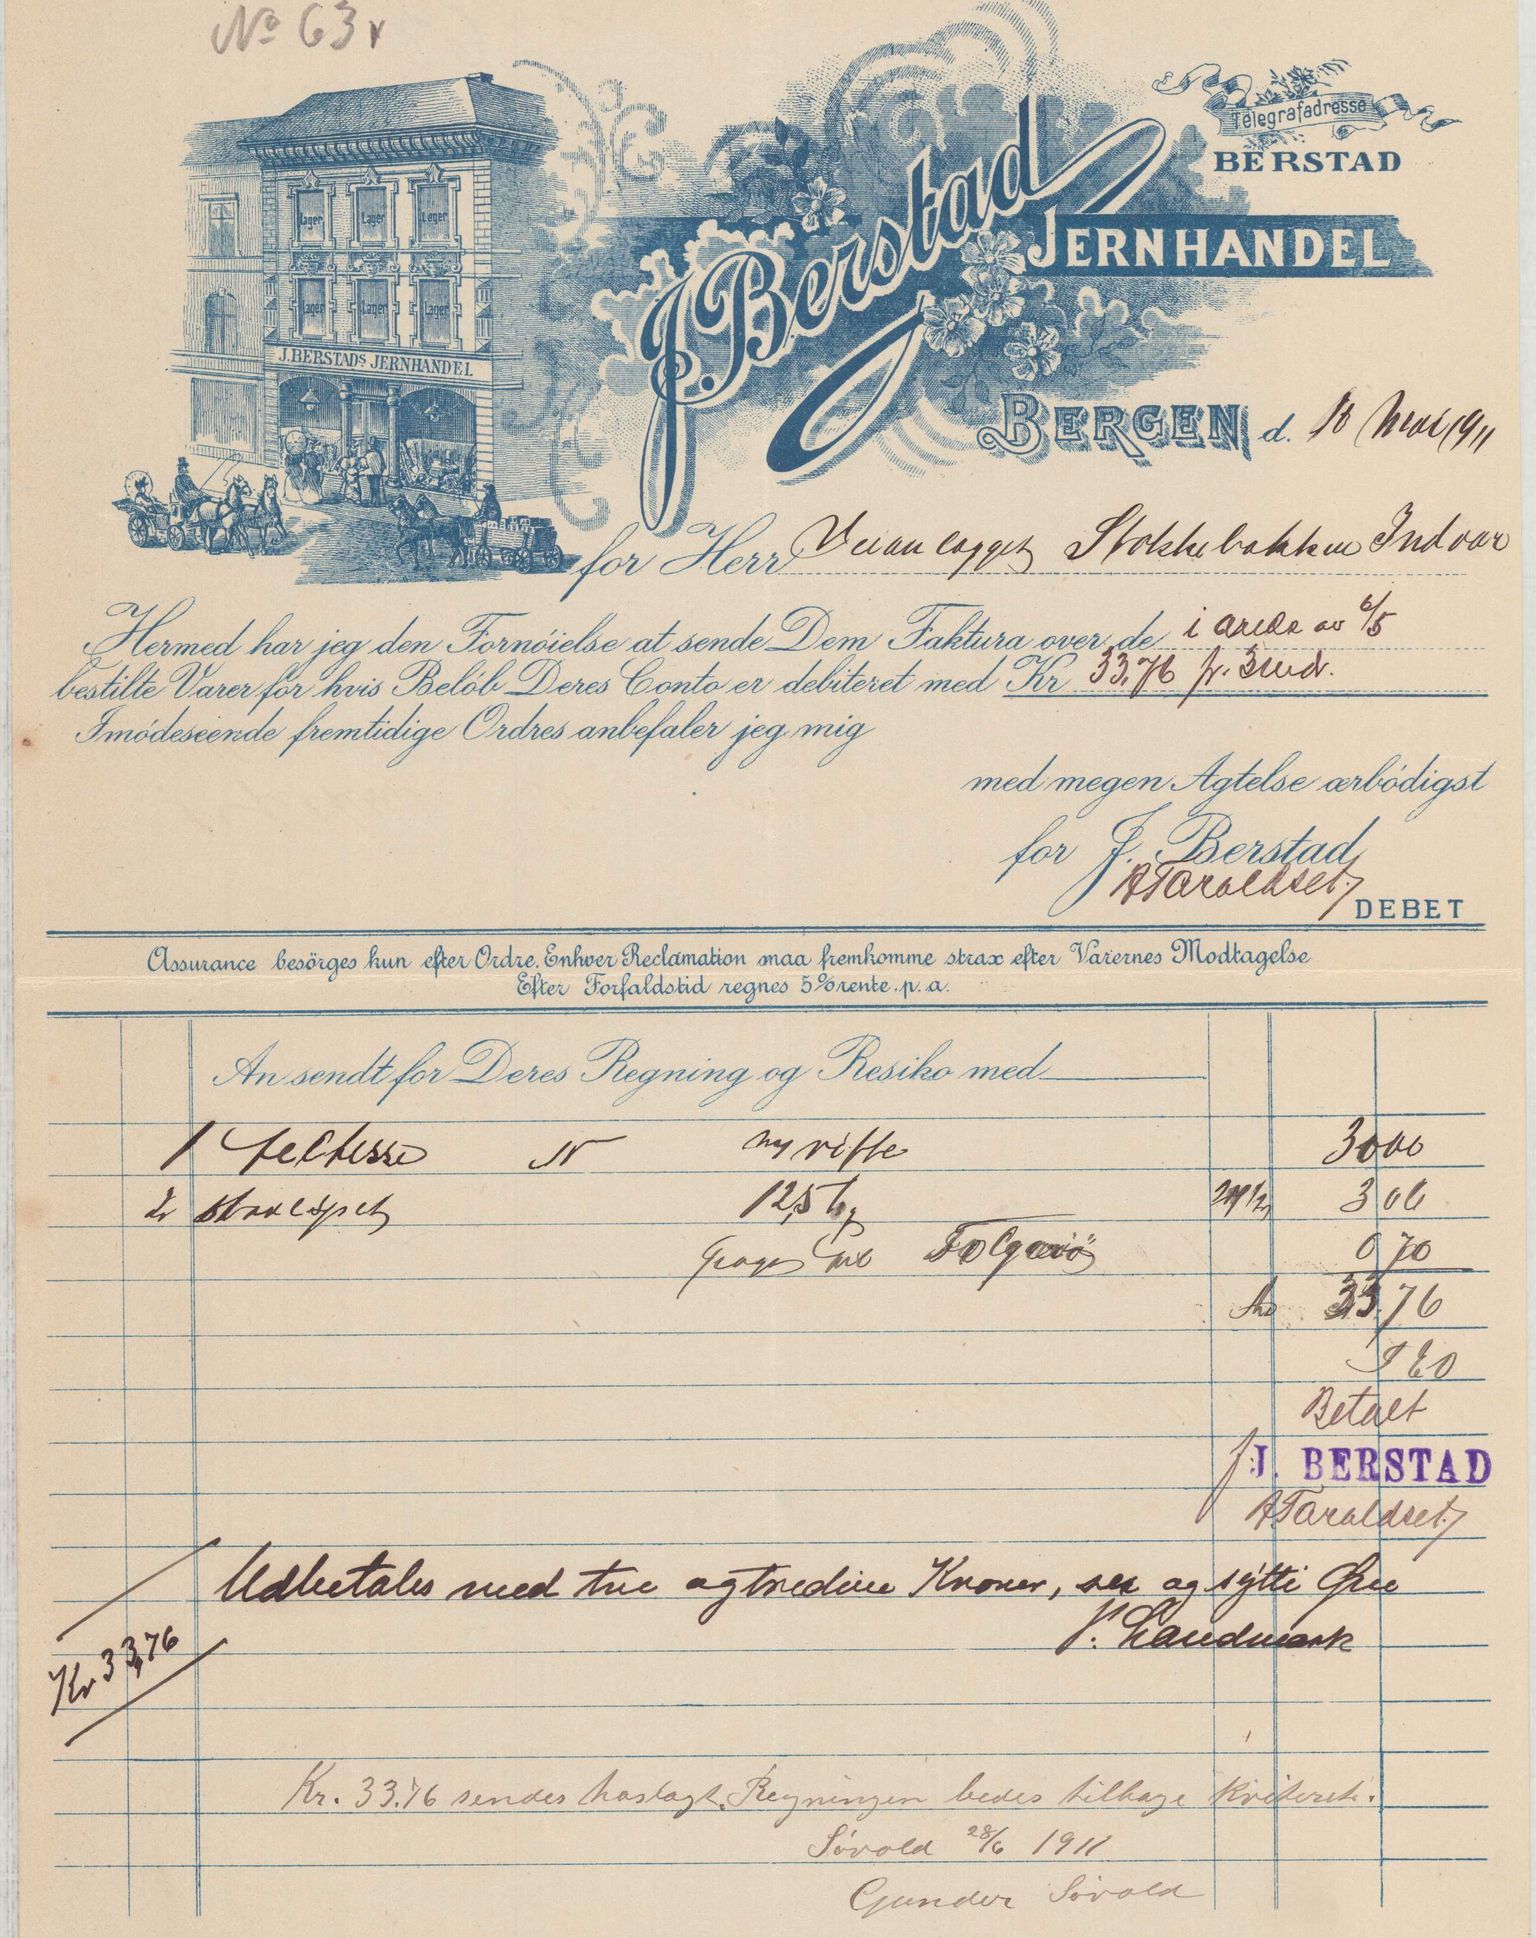 No 63
Telegrafadresse
BERSTAD
J. Berstad
JERNHANDEL
Lager Lager Lager
Lager Lager Lager
J. BERSTADS JERNHANDEL
BERGEN d. 10 Mai 1911
for Herr Veianlægget Stokkebakken Indvær
Hermed har jeg den Fornöielse at sende Dem Faktura over de i ordre av 6/5
bestilte Varer for hvis Belöb Deres Conto er debiteret med Kr 33,76 pr. 3 md.
Imödeseende fremtidige Ordres anbefaler jeg mig
med megen Agtelse ærbödigst
for J. Berstad
A Taraldset
DEBET
Assurance besörges kun efter Ordre. Enhver Reclamation maa fremkomme strax efter Varernes Modtagelse
Efter Forfaldstid regnes 5% rente. p. a.
An sendt for Deres Regning og Resiko med
1 feltesse N ny vifte 30 00
2 staalspet 12,5 kg 24 1/2 3 06
Folgerö 0 70
Kr 33,76
Betalt
f J. BERSTAD
A Taraldset
Udbetales med tre og tredive Kroner, sex og sytti Øre
Kr 33,76
V. Landmark
Kr. 33.76 sendes vedlagt. Regningen bedes tilbage kviteret.
Sörvold 28/6 1911
Gunder Sörvold